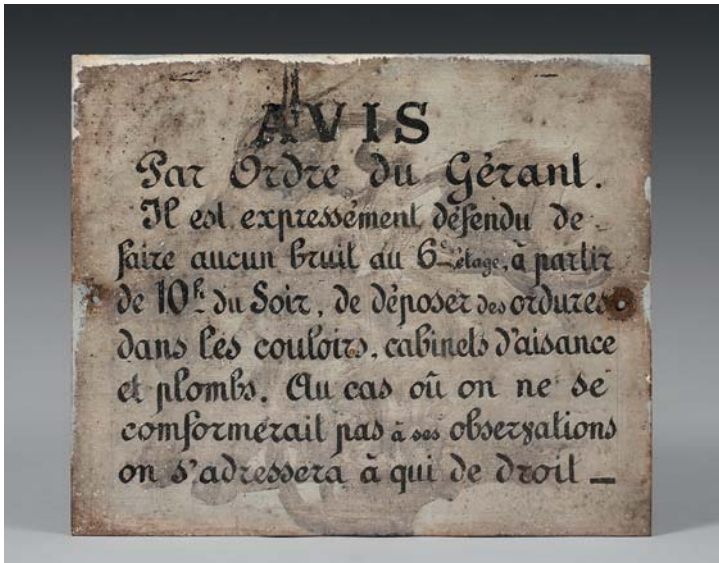 AVIS
Par Ordre du Gérant.
Il est expressément défendu de
faire aucun bruit au 6e étage, à partir
de 10h du Soir, de déposer des ordures
dans les couloirs, cabinets d'aisance
et plombs. Au cas où on ne se
comformerait pas à ses observations
on s'adressera à qui de droit _